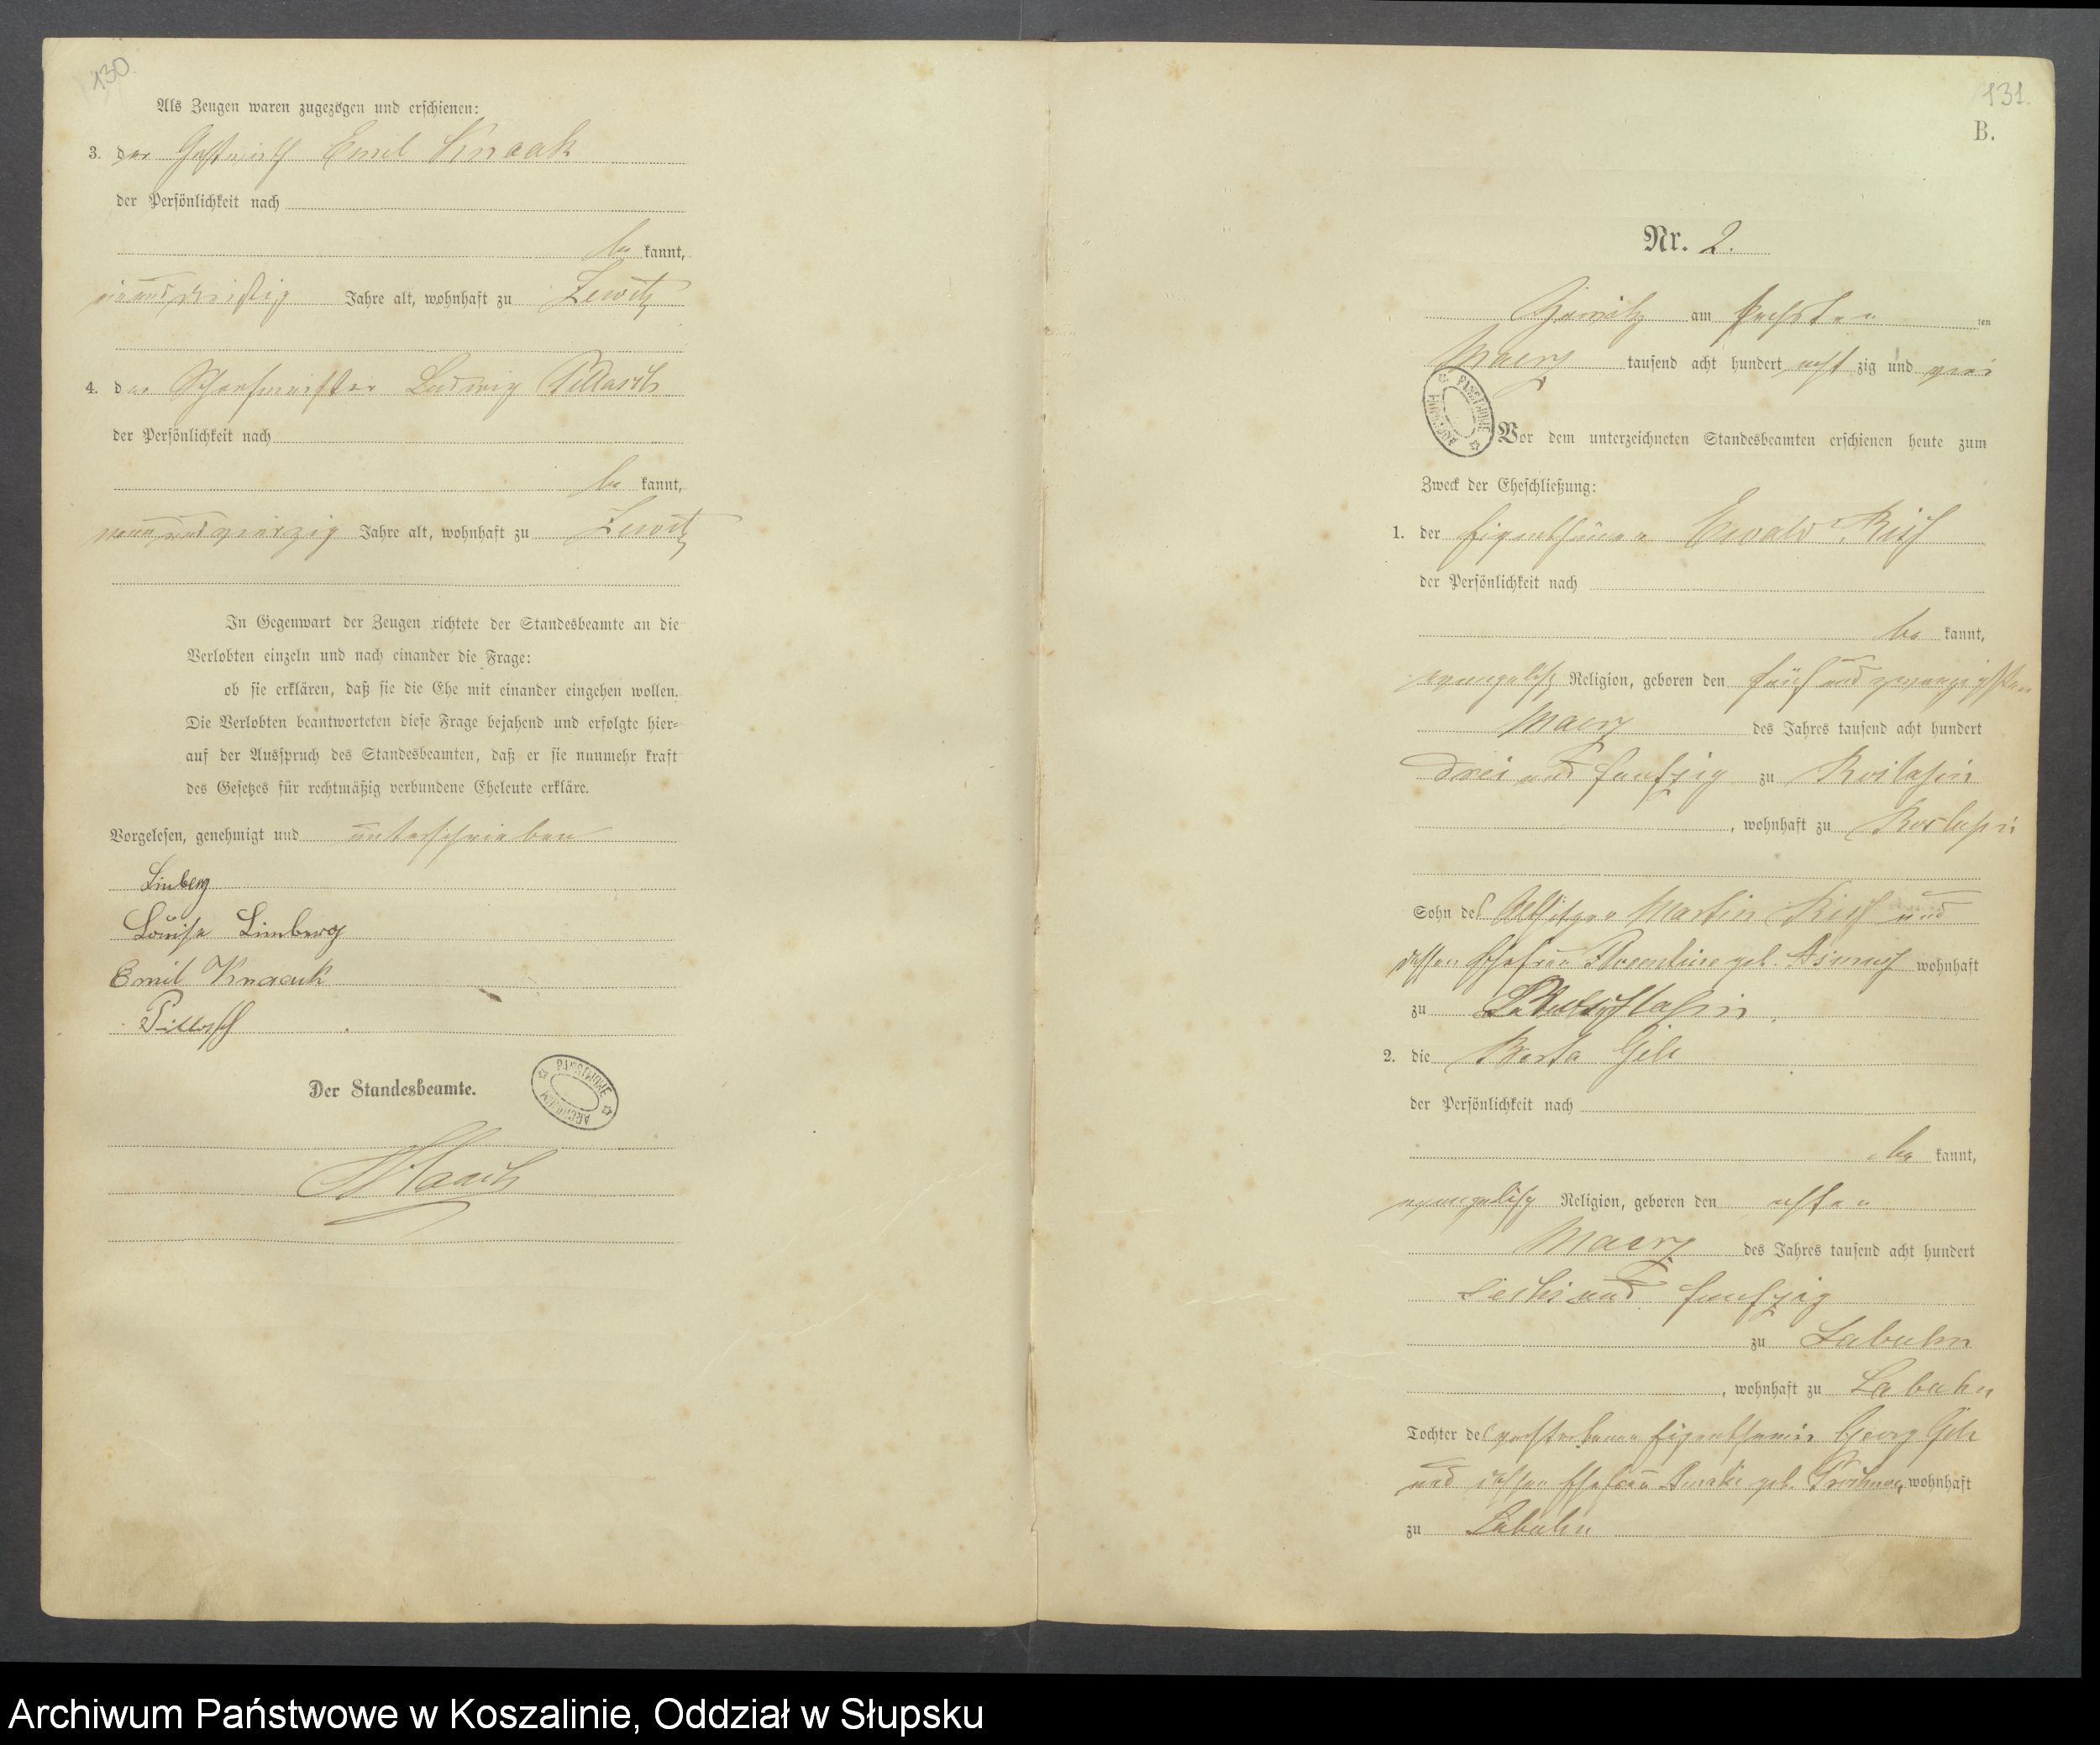 130
Als Zeugen waren zugezogen und erschienen:
3. der Gastwirth Emil Knaak
der Persönlichkeit nach
be kannt,
ein und dreißig Jahre alt, wohnhaft zu Zewitz
4. der Schafmeister Ludwig Pillasch
der Persönlichkeit nach
be kannt,
neun und vierzig Jahre alt, wohnhaft zu Zewitz
In Gegenwart der Zeugen richtete der Standesbeamte an die
Verlobten einzeln und nach einander die Frage:
ob sie erklären, daß sie die Ehe mit einander eingehen wollen.
Die Verlobten beantworteten diese Frage bejahend und erfolgte hier-
auf der Ausspruch des Standesbeamten, daß er sie nunmehr kraft
des Gesetzes für rechtmäßig verbundene Eheleute erkläre.
Vorgelesen, genehmigt und unterschrieben
Limberg
Louise Limberg
Emil Knaack
Pillasch
Der Standesbeamte.
PAŃSTWOWE ARCHIWUM
131.
B.
Nr. 2.
am sechsten ten
Maerz tausend acht hundert acht zig und
PAŃSTWOWE ARCHIWUM
Vor dem unterzeichneten Standesbeamten erschienen heute zum
Zweck der Eheschließung:
1. der Eigenthümer Ewald
der Persönlichkeit nach
be kannt,
evangelisch Religion, geboren den fünf und zwanzigsten
Maerz des Jahres tausend acht hundert
drei und funfzig zu Roslasin
, wohnhaft zu Roslasin
Sohn des Altsitzer Martin und
dessen Ehefrau geb. wohnhaft
zu
2. die Berta
der Persönlichkeit nach
be kannt,
evangelisch Religion, geboren den achten
Maerz des Jahres tausend acht hundert
sechs und funfzig
zu Labuhn
, wohnhaft zu Labuhn
Tochter des verstorbenen Eigenthümers Georg
und dessen Ehefrau geb. wohnhaft
zu Labuhn
Archiwum Państwowe w Koszalinie, Oddział w Słupsku